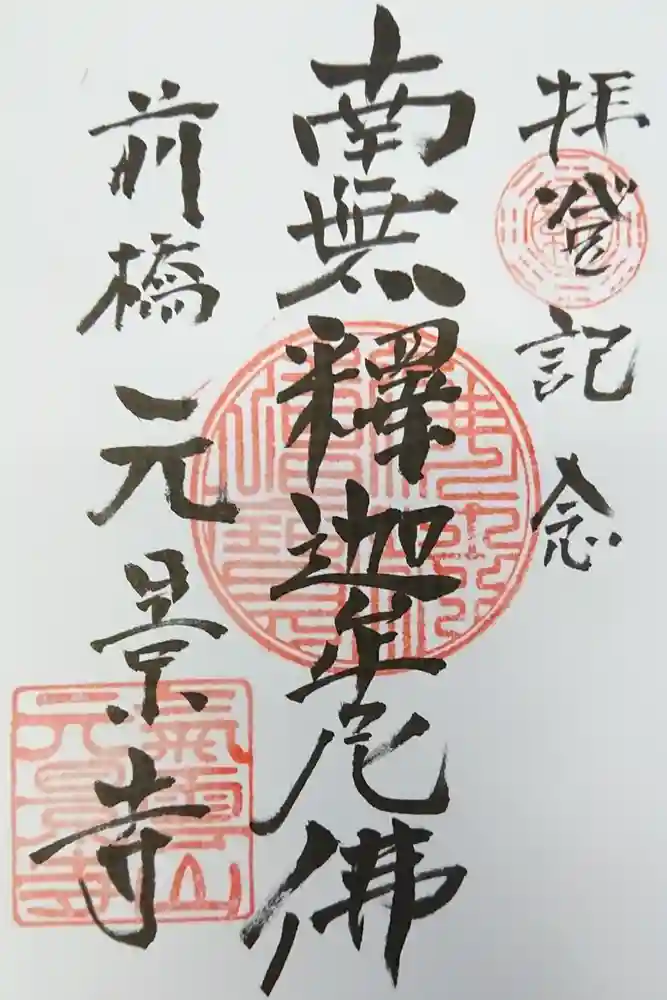 拝登記念
南無釋迦牟尼佛
前橋 元景寺
元景寺